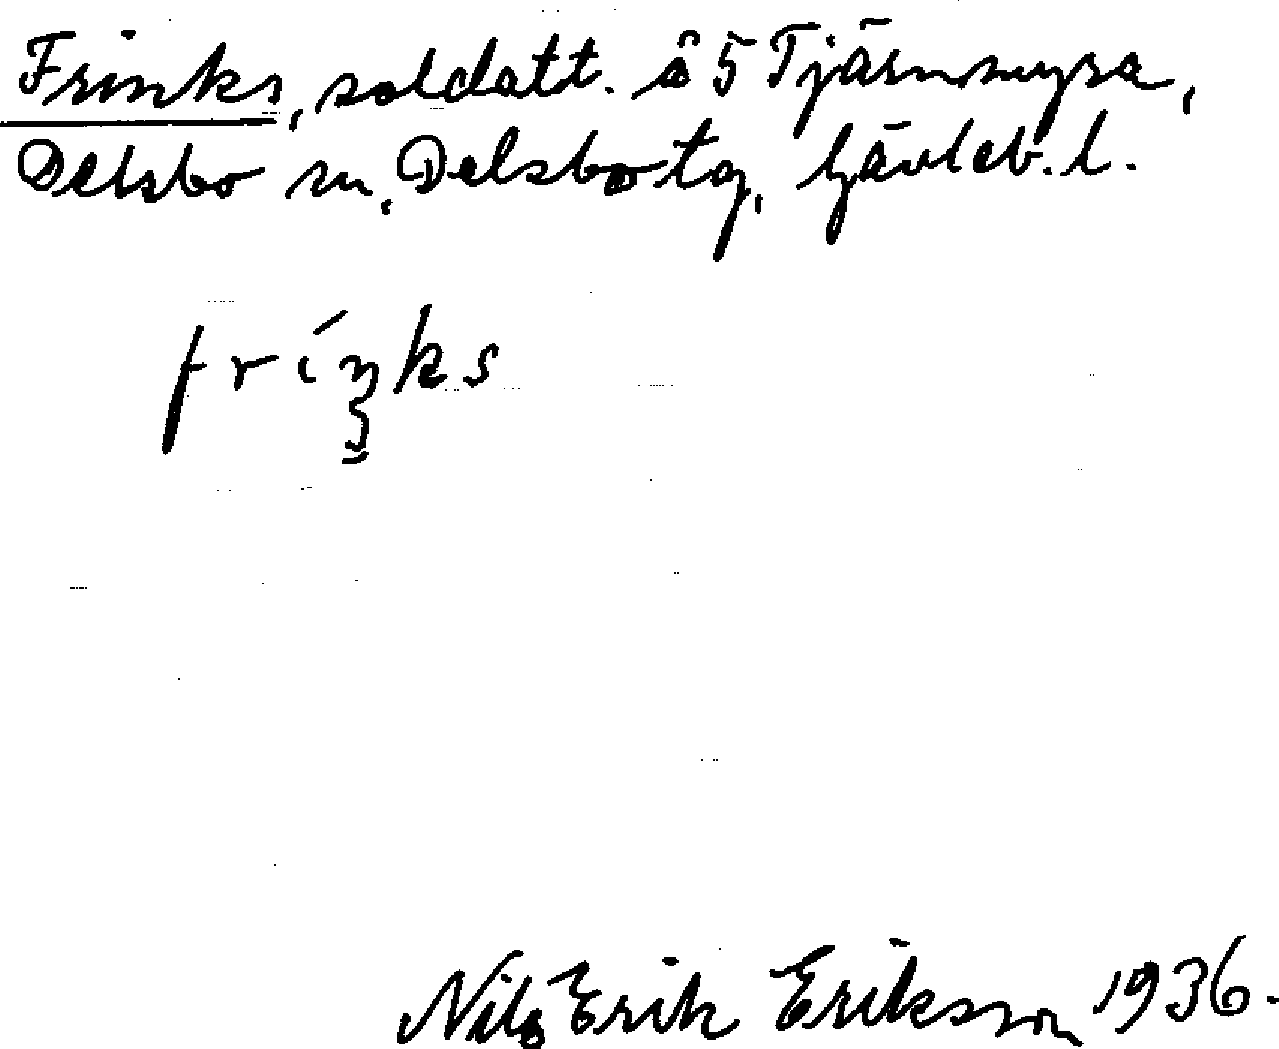 Frinks, soldatt. å 5 Tjärnmyra,
Delsbo sn, Delsbo tg, Gävleb. l.
fríŋks
Nils Erik Eriksson 1936.